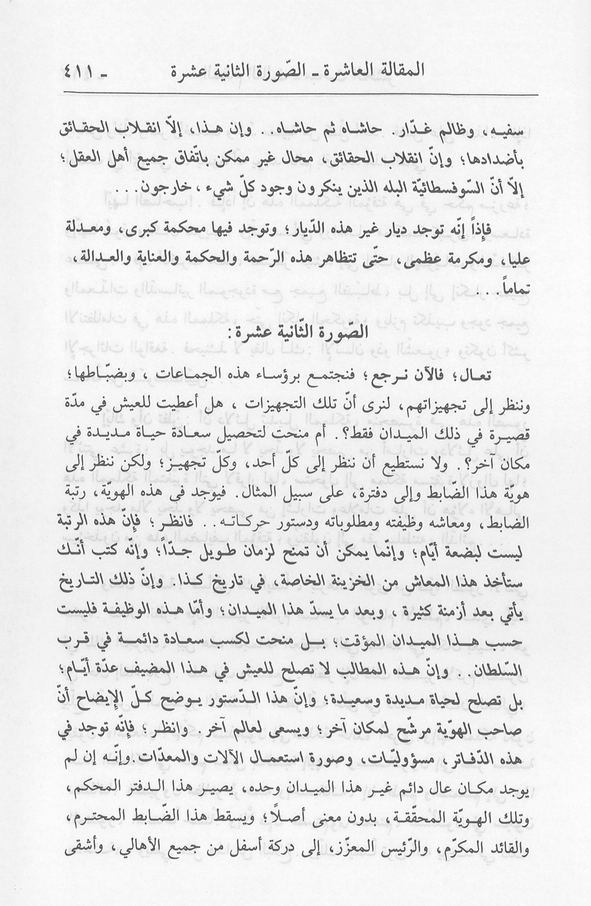 المقالة العاشرة ـ الصّورة الثانية عشرة ـ ٤١١
سفيـه، وظالم غـدّار. حاشـاه ثم حاشاه. . وإن هـذا، إلّا انقـلاب الحقـائق
بأضدادها؛ وإنّ انقلاب الحقائق، محال غير ممكن باتّفاق جميع أهل العقل؛
إلّا أنّ السّوفسطائيّة البله الذين ينكرون وجود كلّ شيء، خارجون. . .
فإذاً إنّه توجد ديار غير هذه الدّيار؛ وتوجد فيها محكمة كبرى، ومعدلة
عليا، ومكرمة عظمى، حتّى تتظاهر هذه الرّحمة والحكمة والعناية والعدالة،
تماماً. . .
الصّورة الثّانية عشرة:
تعـال؛ فالآن نـرجع؛ فنجتمـع برؤساء هذه الجماعات، وبضبّاطها؛
وننظر إلى تجهيزاتهم، لنرى أنّ تلك التجهيزات، هل أعطيت للعيش في مدّة
قصيرة في ذلك الميدان فقط؟. أم منحت لتحصيل سعادة حياة مـديدة في
مكان آخر؟. ولا نستطيع أن ننظر إلى كلّ أحد، وكلّ تجهيز؛ ولكن ننظر إلى
هويّة هذا الضّابط وإلى دفترة، على سبيل المثال. فيوجد في هذه الهويّة، رتبة
الضابط، ومعاشه وظيفته ومطلوباته ودستور حركاته. . فانظر؛ فإنّ هذه الرتبة
ليست لبضعة أيّام؛ وإنّما يمكن أن تمنح لزمان طويل جدّاً؛ وإنّه كتب أنّـك
ستأخذ هذا المعاش من الخزينة الخاصة، في تاريخ كذا. وإنّ ذلك التـاريخ
يأتي بعد أزمنة كثيرة، وبعد ما يسدّ هذا الميدان؛ وأمّا هـذه الوظيفـة فليست
حسب هـذا الميدان المؤقت؛ بـل منحت لكسب سعـادة دائمـة في قـرب
السّلطان. . وإنّ هـذه المطالب لا تصلح للعيش في هـذا المضيف عدّة أيّـام؛
بل تصلح لحياة مديدة وسعيدة؛ وإنّ هذا الدّستور يـوضح كـلّ الإيضاح أنّ
صاحب الهويّة مرشّح لمكان آخر؛ ويسعى لعالم آخر. وانظر؛ فإنّه توجد في
هذه الدّفاتر، مسؤوليّات، وصورة استعمال الآلات والمعدّات.وإنّـه إن لم
يوجد مكـان عال دائم غيـر هـذا الميدان وحده، يصيـر هـذا الـدفتر المحكم،
وتلك الهـويّة المحقّقـة، بدون معنى أصلاً؛ ويسقط هذا الضّابط المحتـرم،
والقائد المكرّم، والرّئيس المعزّز، إلى دركة أسفل من جميع الأهالي، وأشقى